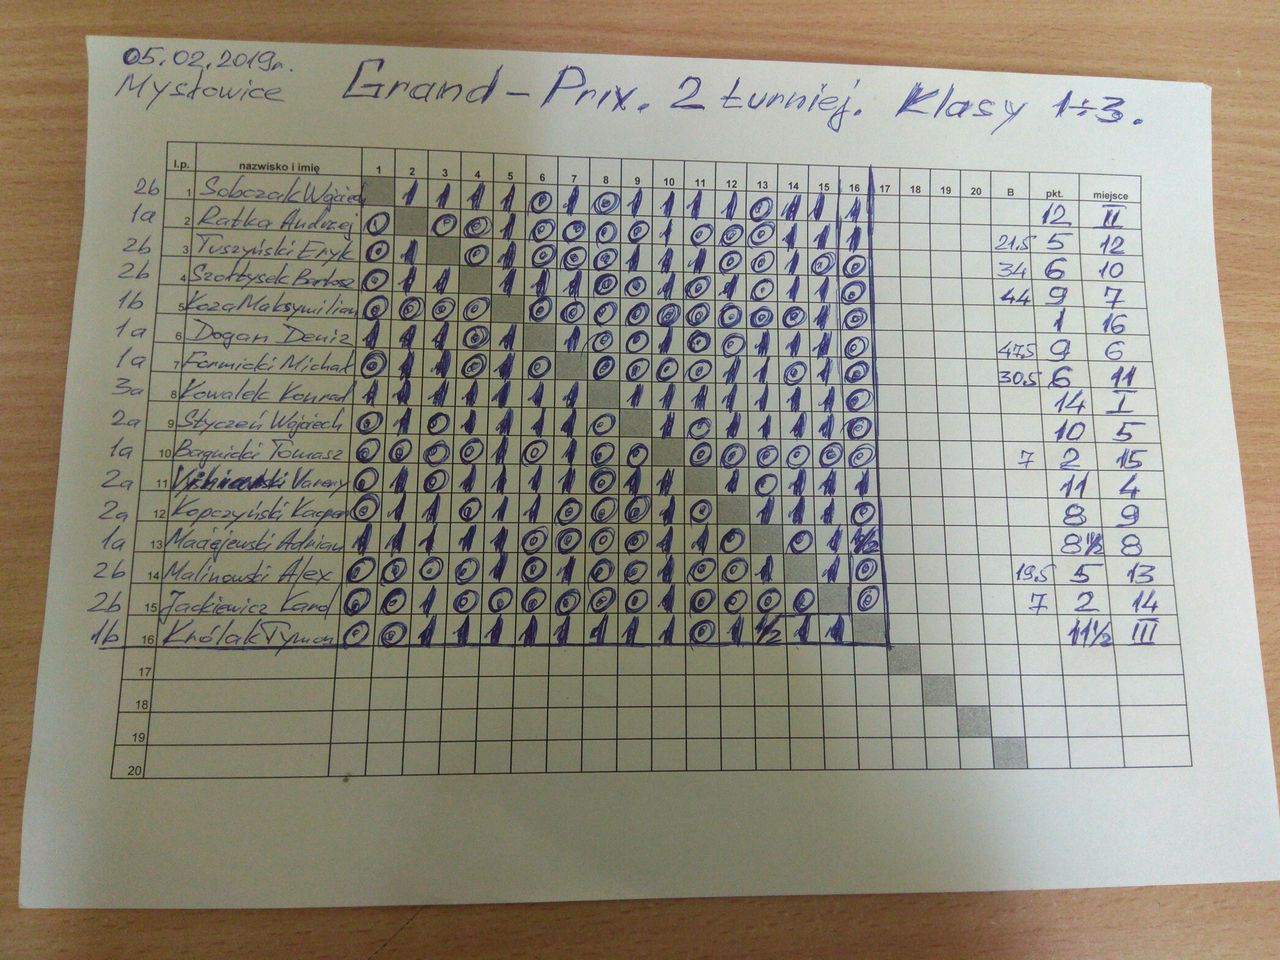 05.02.2019r.
Mysłowice Grand-Prix. 2 turniej. Klasy 1÷3.
l.p. nazwisko i imię 1 2 3 4 5 6 7 8 9 10 11 12 13 14 15 16 17 18 19 20 B pkt. miejsce
2b 1 Sobczak Wojciech 1 1 1 1 0 1 0 1 1 1 1 0 1 1 1 12 II
1a 2 Ratka Andrzej 0 0 0 1 0 0 0 0 1 0 0 0 1 1 1 21,5 5 12
2b 3 Tuszyński Eryk 0 1 0 1 0 0 0 1 1 1 0 0 1 0 0 34 6 10
2b 4 Szołtysek Bartosz 0 1 1 1 1 1 0 0 1 1 1 0 1 1 0 44 9 7
1b 5 Koza Maksymilian 0 0 0 0 0 0 0 0 0 0 0 0 0 1 0 1 16
1a 6 Dogan Deniz 1 1 1 0 1 1 0 0 1 0 0 1 1 1 0 47,5 9 6
1a 7 Formicki Michał 0 1 1 0 1 0 0 0 0 0 1 1 0 1 0 30,5 6 11
3a 8 Kowalek Konrad 1 1 1 1 1 1 1 1 1 1 1 1 1 1 0 14 I
2a 9 Styczeń Wojciech 0 1 0 1 1 1 1 0 1 0 1 1 1 1 0 10 5
1a 10 Bagnicki Tomasz 0 0 0 0 1 0 1 0 0 0 0 0 0 0 0 7 2 15
2a 11 0 1 0 1 1 1 1 0 1 1 1 0 1 1 1 11 4
2a 12 Kopczyński Kacper 0 1 1 0 1 1 0 0 0 1 0 1 1 1 0 8 9
1a 13 Maciejewski Adrian 1 1 1 1 1 0 0 0 0 1 1 0 0 1 1/2 8 1/2 8
2b 14 Malinowski Alex 0 0 0 0 1 0 1 0 0 1 0 0 1 1 0 19,5 5 13
2b 15 Jackiewicz Karol 0 0 1 0 0 0 0 0 0 1 0 0 0 0 0 7 2 14
1b 16 Królak Tymon 0 0 1 1 1 1 1 1 1 1 0 1 1/2 1 1 11 1/2 III
17
18
19
20